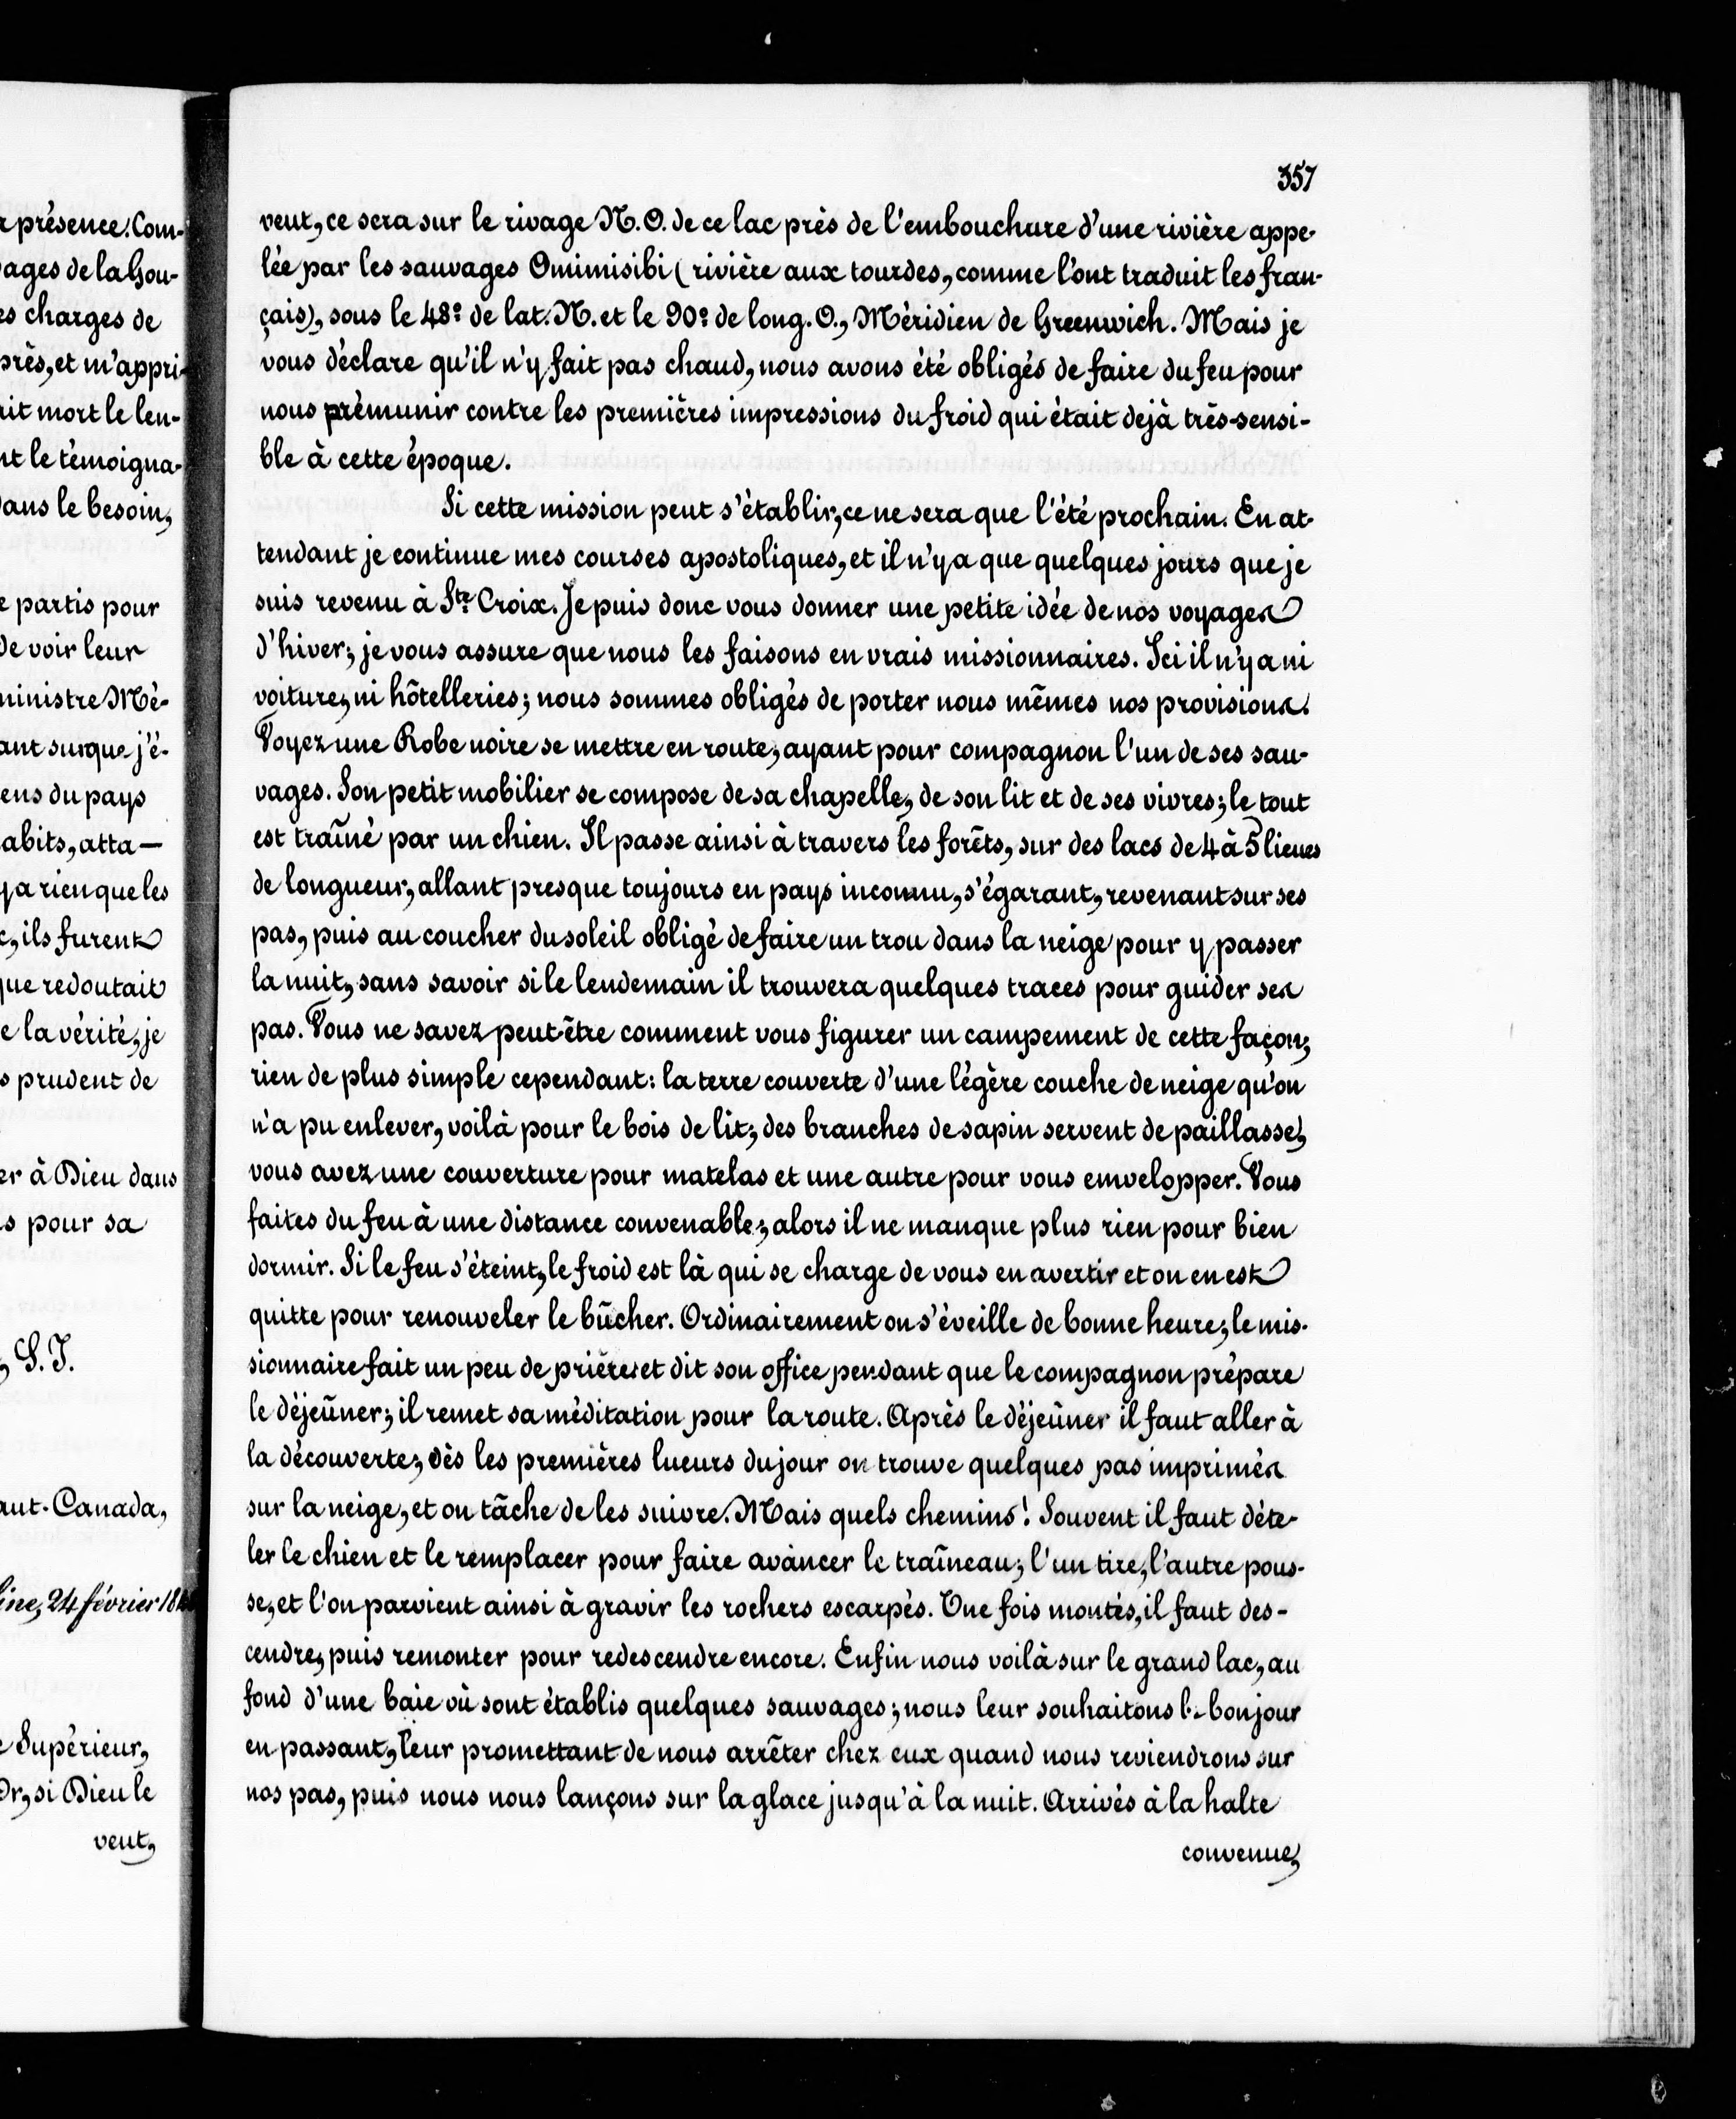 r présence. Com-
vages de la Gou-
es charges de
près, et m'appri-
ait mort le len-
nt le témoigna-
dans le besoin,
e partis pour
de voir leur
ministre Mé-
ant surque j'é-
ens du pays
abits, atta—
y a rien que les
c, ils furent
que redoutait
e la vérité, je
s prudent de
er à Dieu dans
s pour sa
, S.J.
aut-Canada,
line, 24 février 18
e Supérieur,
Or, si Dieu le
veut,
357
veut, ce sera sur le rivage N.O. de ce lac près de l'embouchure d'une rivière appe-
lée par les sauvages Omimisibi (rivière aux tourdes, comme l'ont traduit les fran-
çais), sous le 48° de lat. N. et le 90° de long. O., Méridien de Greenwich. Mais je
vous déclare qu'il n'y fait pas chaud, nous avons été obligés de faire du feu pour
nous prémunir contre les premières impressions du froid qui était dejà très-sensi-
ble à cette époque.
Si cette mission peut s'établir, ce ne sera que l'été prochain. En at-
tendant je continue mes courses apostoliques, et il n'y a que quelques jours que je
suis revenu à Ste Croix. Je puis donc vous donner une petite idée de nos voyages
d'hiver; je vous assure que nous les faisons en vrais missionnaires. Ici il n'y a ni
voiture, ni hôtelleries; nous sommes obligés de porter nous mêmes nos provisions.
Voyez une Robe noire se mettre en route, ayant pour compagnon l'un de ses sau-
vages. Son petit mobilier se compose de sa chapelle, de son lit et de ses vivres; le tout
est traîné par un chien. Il passe ainsi à travers les forêts, sur des lacs de 4 à 5 lieues
de longueur, allant presque toujours en pays inconnu, s'égarant, revenant sur ses
pas, puis au coucher du soleil obligé de faire un trou dans la neige pour y passer
la nuit, sans savoir si le lendemain il trouvera quelques traces pour guider ses
pas. Vous ne savez peut-être comment vous figurer un campement de cette façon;
rien de plus simple cependant: la terre couverte d'une légère couche de neige qu'on
n'a pu enlever, voilà pour le bois de lit; des branches de sapin servent de paillasse,
vous avez une couverture pour matelas et une autre pour vous envelopper. Vous
faites du feu à une distance convenable; alors il ne manque plus rien pour bien
dormir. Si le feu s'éteint, le froid est là qui se charge de vous en avertir et on en est
quitte pour renouveler le bûcher. Ordinairement on s'éveille de bonne heure; le mis-
sionnaire fait un peu de prière et dit son office pendant que le compagnon prépare
le déjeûner; il remet sa méditation pour la route. Après le déjeûner il faut aller à
la découverte; dès les premières lueurs du jour on trouve quelques pas imprimés
sur la neige, et on tâche de les suivre. Mais quels chemins! Souvent il faut déte-
ler le chien et le remplacer pour faire avancer le traîneau; l'un tire, l'autre pous-
se, et l'on parvient ainsi à gravir les rochers escarpés. Une fois montés, il faut des-
cendre, puis remonter pour redescendre encore. Enfin nous voilà sur le grand lac, au
fond d'une baie où sont établis quelques sauvages; nous leur souhaitons le bonjour
en passant, leur promettant de nous arrêter chez eux quand nous reviendrons sur
nos pas, puis nous nous lançons sur la glace jusqu'à la nuit. Arrivés à la halte
convenue,